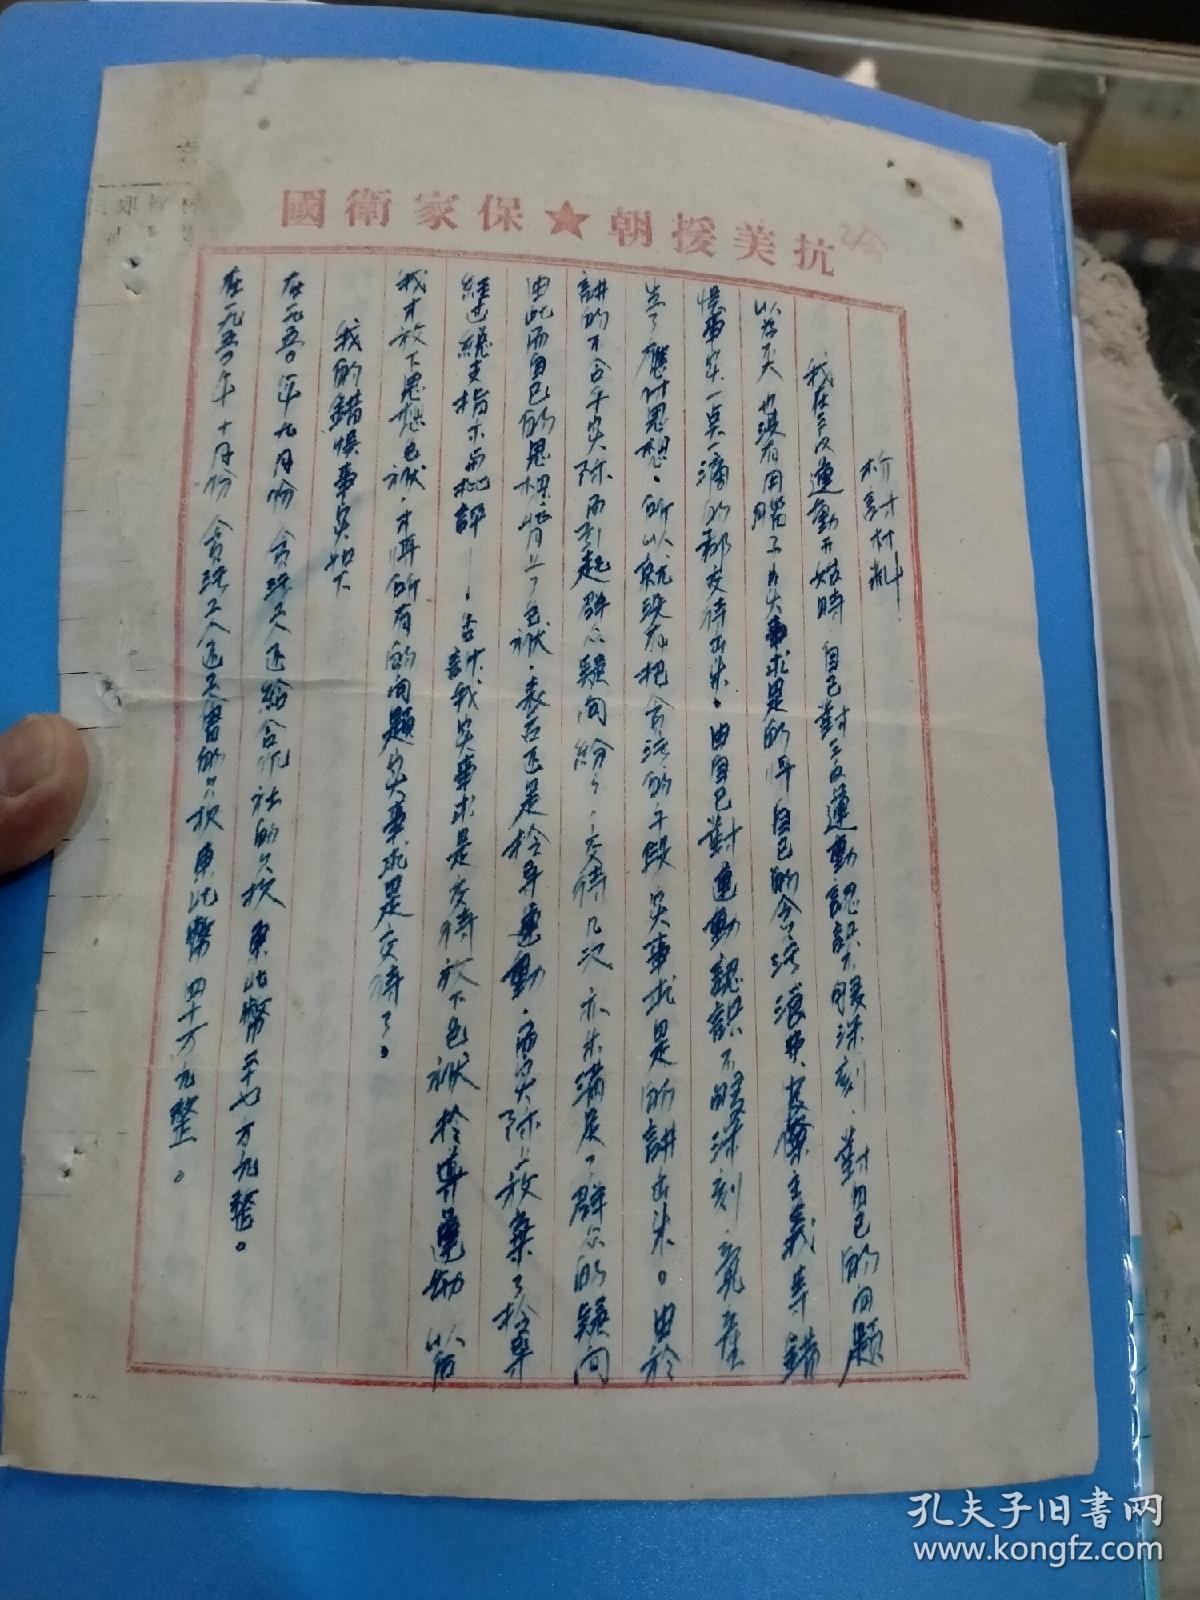 抗美援朝★保家衛國
检討材料
我在三反運動开始時 自己對三反運動認识不够深刻，對自己的问題
以为天 也没有用腦子去实事求是的将自己的贪污浪费官僚主義等錯
悮事实一点一滴的都交待出来。由自己對運動認識不够深刻，竟產
生了應付思想。所以就没有把贪污的手段 实事求是的講出来。由於
講的不合乎实际而引起群众疑问纷纷，交待几次亦未满足了群众的疑问
由此而自己的思想背上了包袱。表面还是领导運動，而实际上放棄了领导
经过總支指示而批評 告訴我实事求是交待放下包袱领導運动 以后
我才放下思想包袱，才将所有的问題实事求是交待了。
我的錯悮事实如下
在一九五〇年九月份 贪污工人还給合作社的欠款 東北幣三十七万元整。
在一九五〇年十月份 贪污工人还工會的欠款東北幣四十万元整。
取
孔夫子旧书网
www.kongfz.com